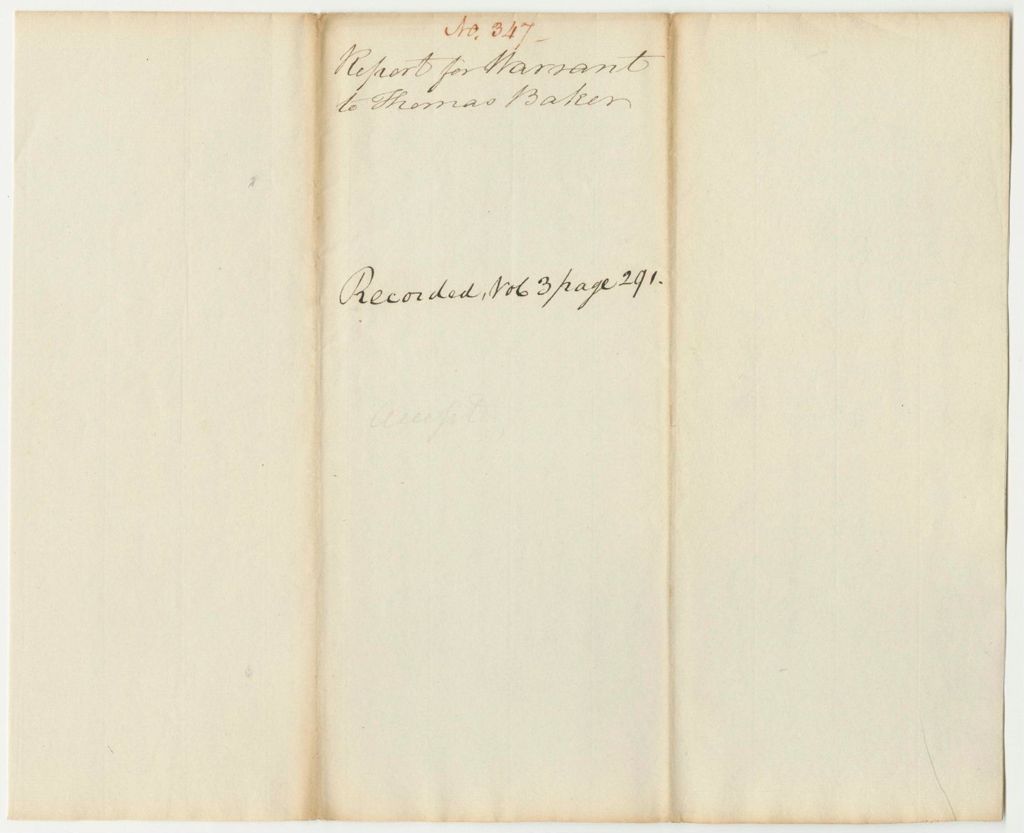 No. 347
Report for Warrant
to Thomas Baker
Recorded, Vol 3 page 291.